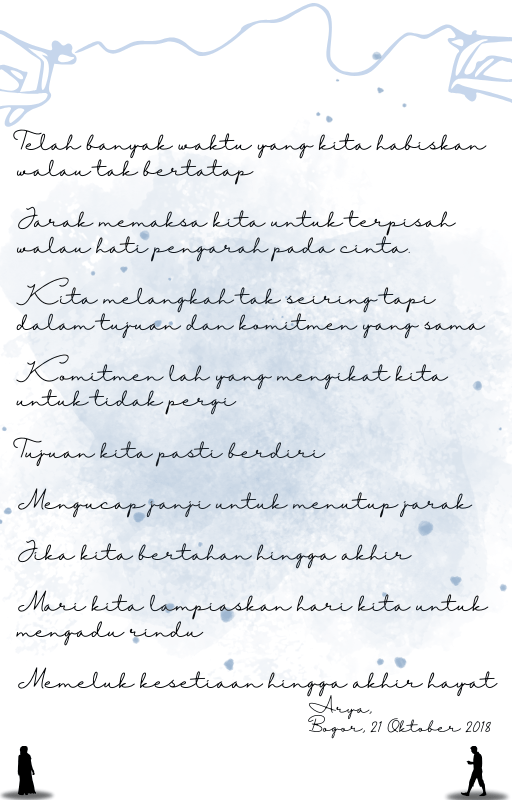 Telah banyak waktu yang kita habiskan
walau tak bertatap
Jarak memaksa kita untuk terpisah
walau hati pengarah pada cinta.
Kita melangkah tak seiring tapi
dalam tujuan dan komitmen yang sama
Komitmen lah yang mengikat kita
untuk tidak pergi
Tujuan kita pasti berdiri
Mengucap janji untuk menutup jarak
Jika kita bertahan hingga akhir
Mari kita lampiaskan hari kita untuk
mengadu rindu
Memeluk kesetiaan hingga akhir hayat
Arya,
Bogor, 21 Oktober 2018